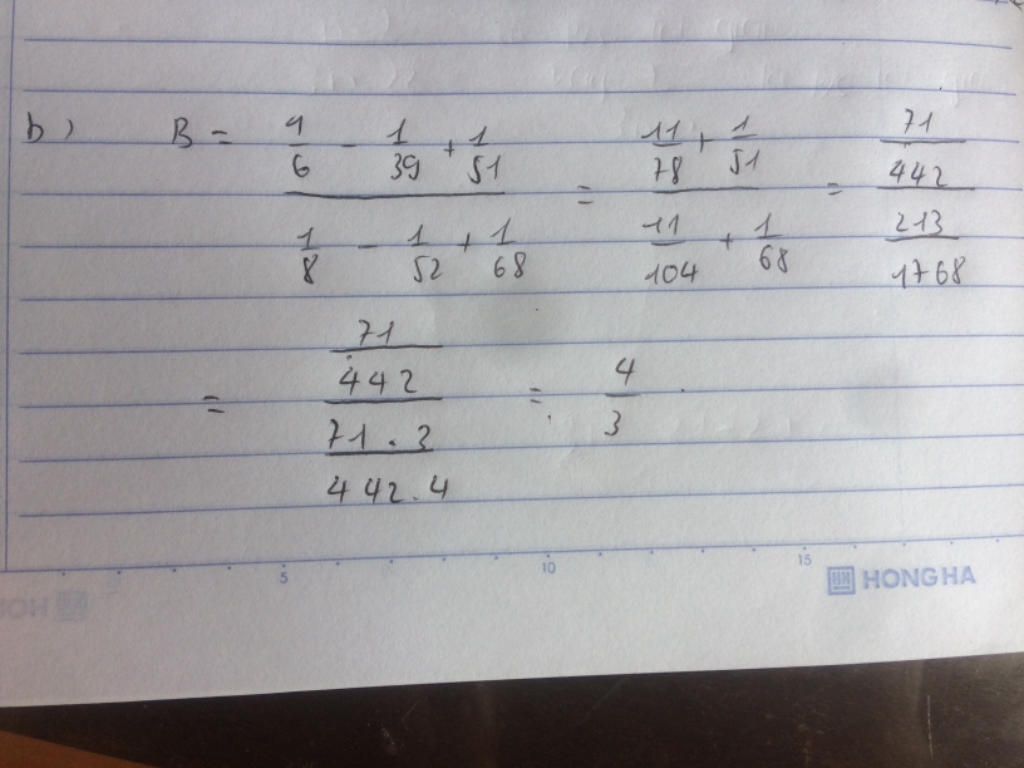 b) B = 1/6 - 1/39 + 1/51 / 1/8 - 1/52 + 1/68 = 11/78 + 1/51 / 11/104 + 1/68 = 71/442 / 213/1768
= 71/442 / 71.3/442.4 = 4/3.
5 10 15
HONG HA